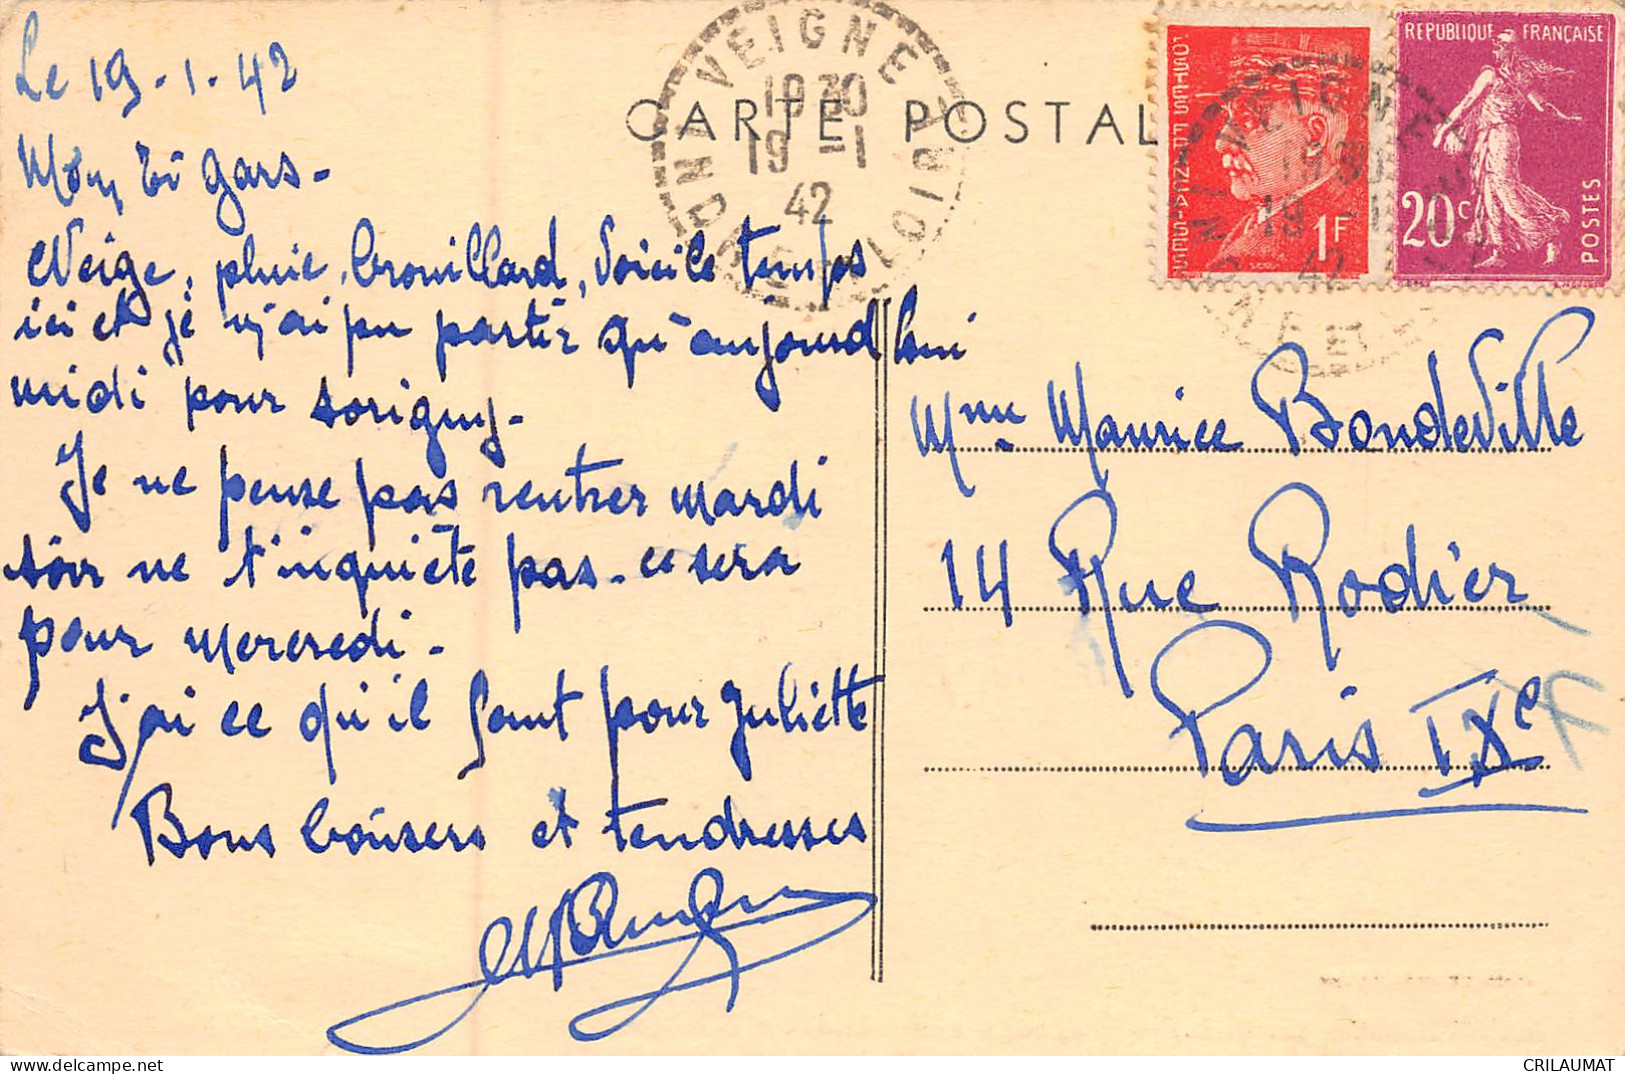 Le 19-1-42
Mon ti gars-
Neige, pluie, brouillard, voici le temps
ici et je n'ai pu partir qu'aujourd'hui
midi pour Sorigny-
Je ne pense pas rentrer mardi
soir ne t'inquiète pas-ce sera
pour Mercredi-
J'ai ce qu'il faut pour Juliette
Bons baisers et tendresses
CARTE POSTAL
VEIGNE
1930
19 -1
42
INDRE ET LOIRE
POSTES FRANÇAISES
1F
REPUBLIQUE FRANÇAISE
20c
POSTES
VEIGNE
1930
19 -1
42
Mme Maurice Bondeville
14 Rue Rodier
Paris IXe
CRILAUMAT